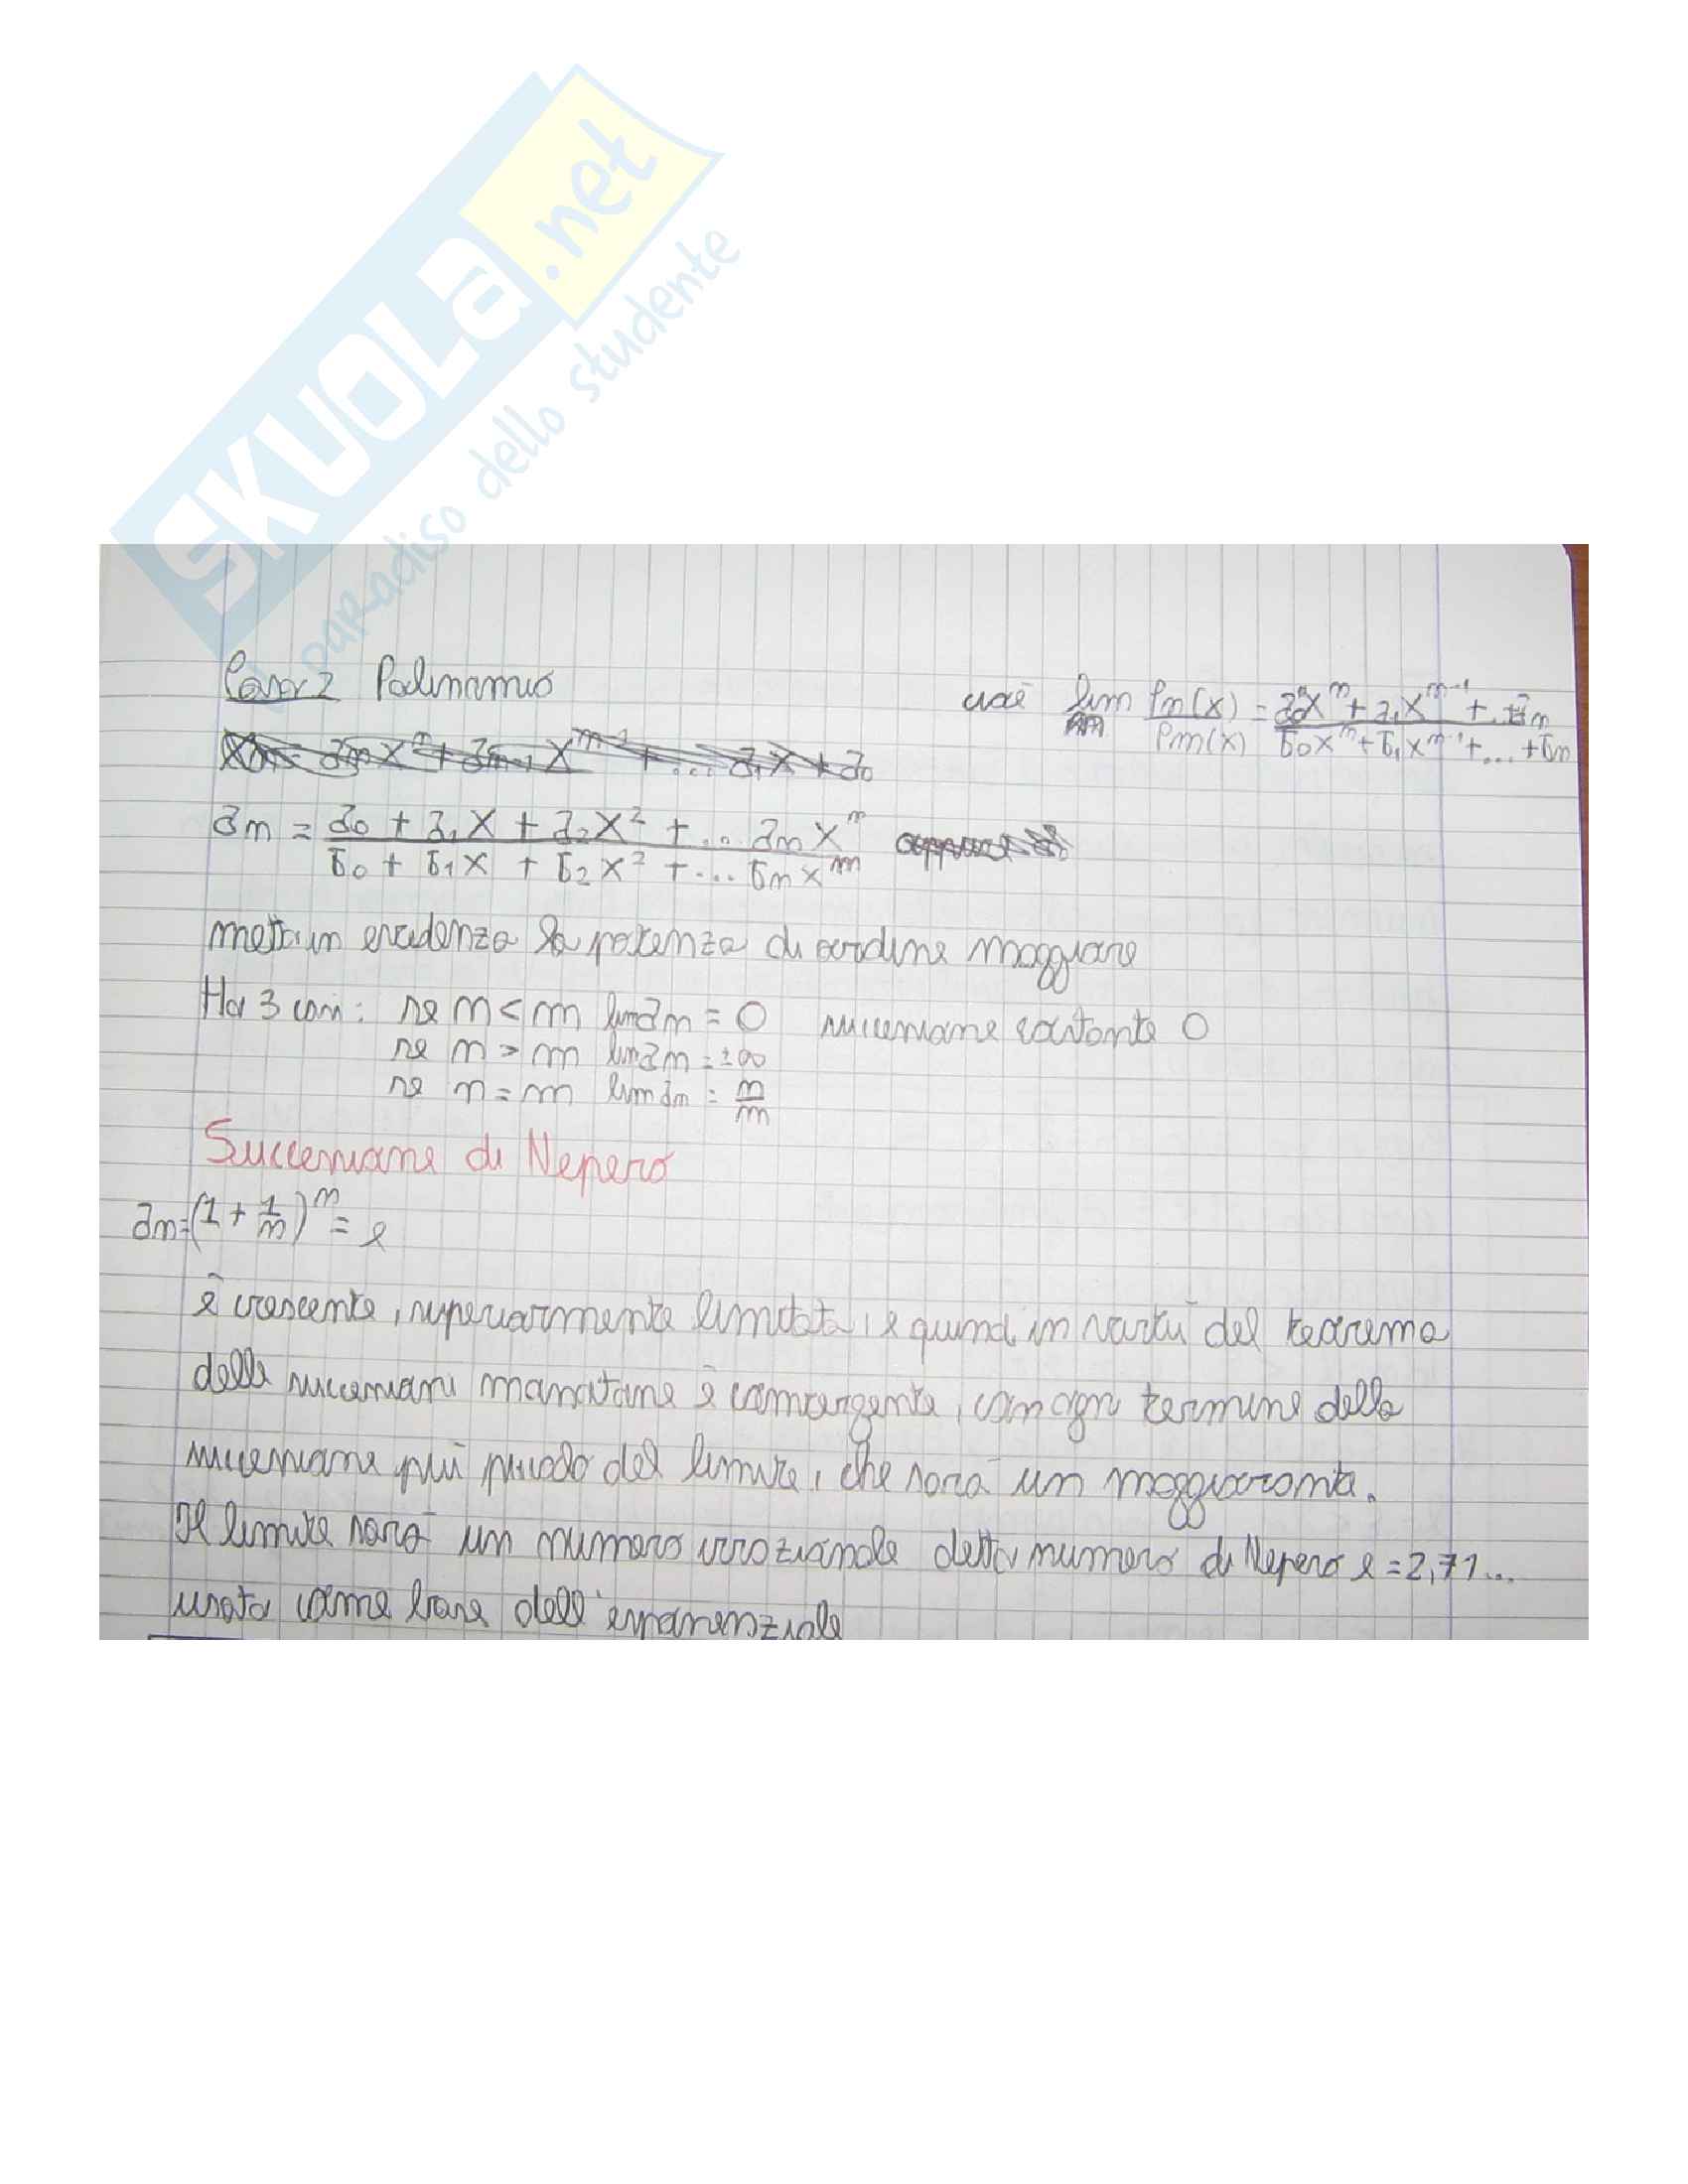 SKUOLA.net
il paradiso dello studente
Caso 2 Polinomio
cioè lim Pn(x)/Pm(x) = a₀xⁿ + a₁xⁿ⁻¹ + ... + an / b₀xᵐ + b₁xᵐ⁻¹ + ... + bm
an = a₀ + a₁x + a₂x² + ... anxⁿ / b₀ + b₁x + b₂x² + ... bmxᵐ
metto in evidenza la potenza di ordine maggiore
Ho 3 casi: se n < m lim an = 0 successione costante 0
se n > m lim an = ±∞
se n = m lim an = n/m
Successione di Nepero
an = (1 + 1/n)ⁿ = e
è crescente, superiormente limitata, e quindi in virtù del teorema
delle successioni monotone è convergente, con ogni termine della
successione più piccolo del limite, che sarà un maggiorante.
Il limite sarà un numero irrazionale detto numero di Nepero e = 2,71...
usato come base dell'esponenziale